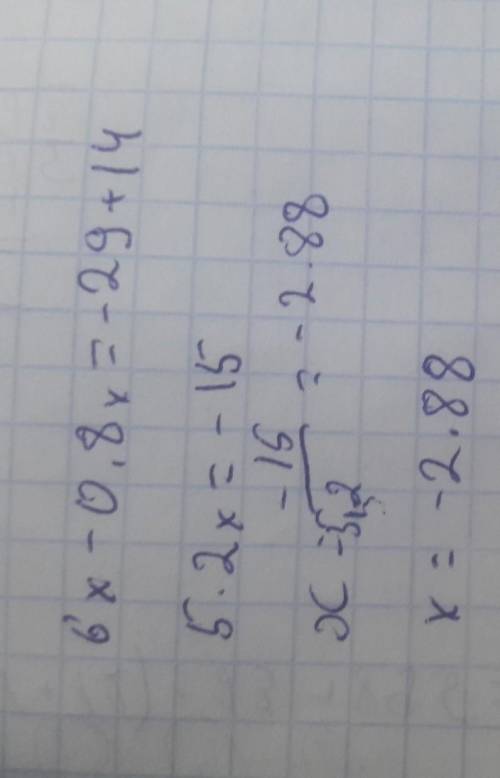 6x - 0.8x = -29 + 14
5.2x = -15
x = -15/5,2 = -2.88
x = -2.88